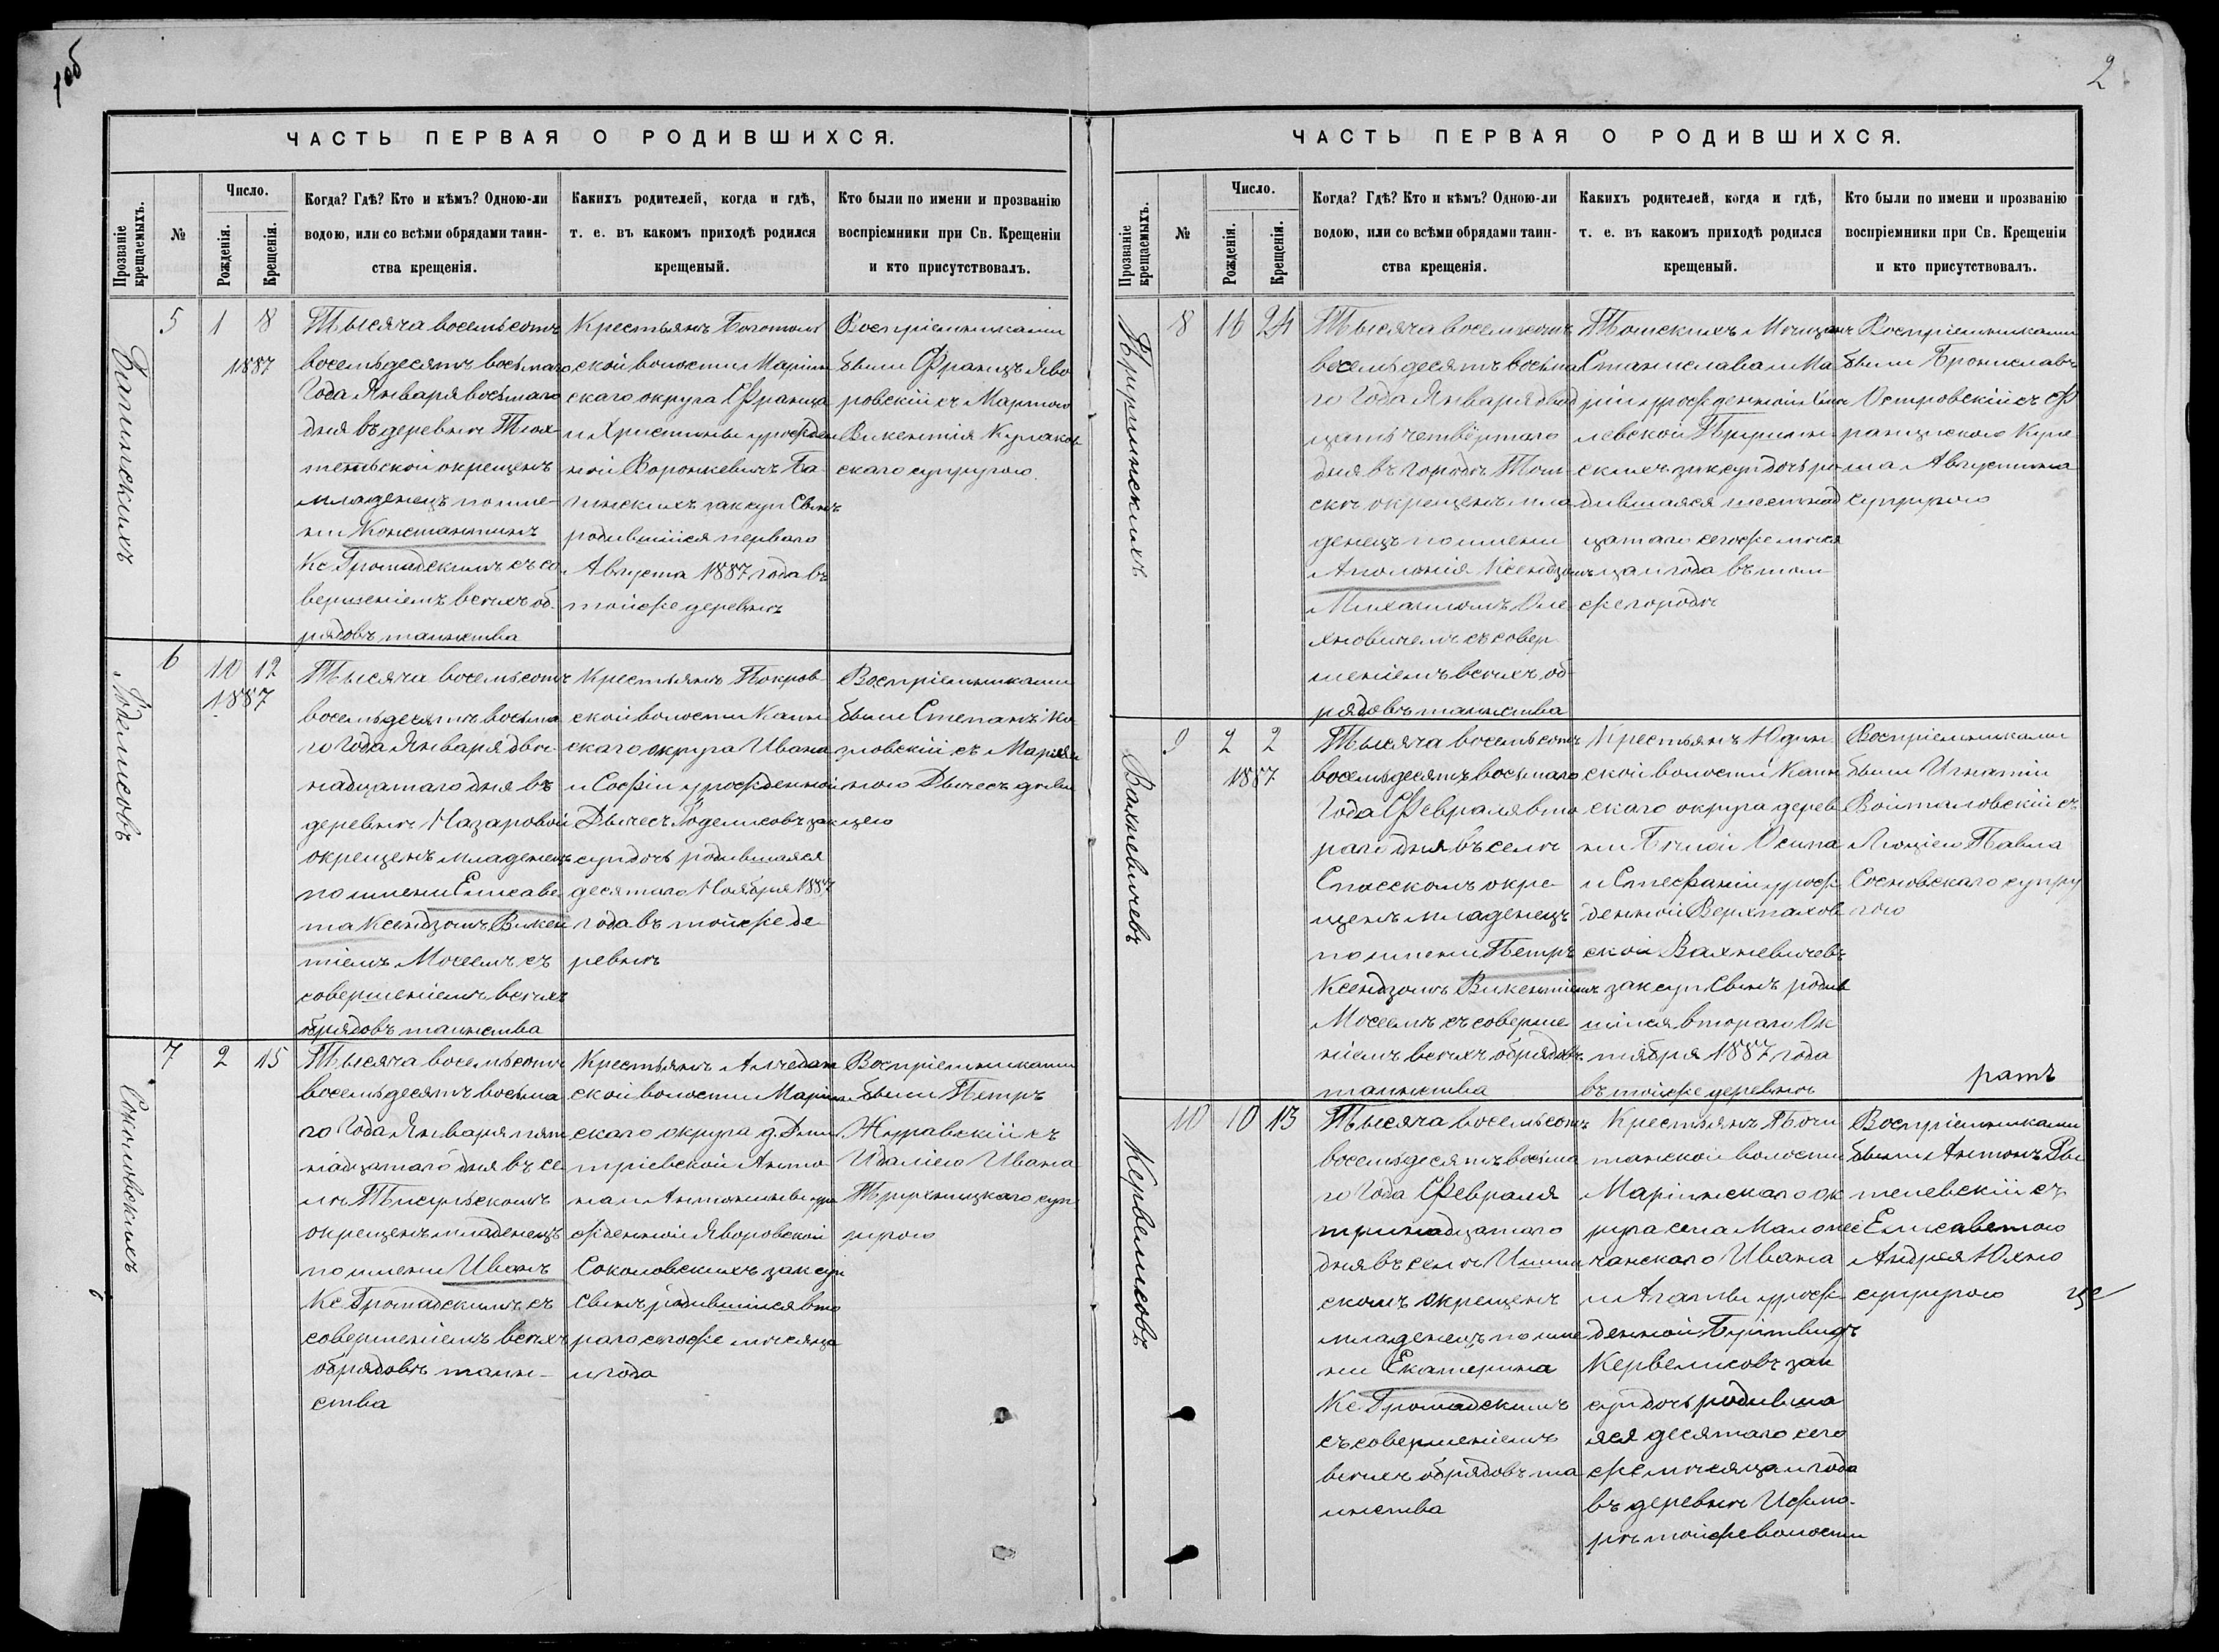 1об
ЧАСТЬ ПЕРВАЯ О РОДИВШИХСЯ.
Прозваніе крещаемыхъ.
№
Число.
Рожденія.
Крещенія.
Когда? Гдѣ? Кто и кѣмъ? Одною-ли
водою, или со всѣми обрядами таин-
ства крещенія.
Какихъ родителей, когда и гдѣ,
т. е. въ какомъ приходѣ родился
крещеный.
Кто были по имени и прозванію
воспріемники при Св. Крещеніи
и кто присутствовалъ.
Багинскихъ
5
1
8
1887
Тысяча восемьсотъ
восемьдесятъ восьмаго
Года Января восьмаго
дня въ деревнѣ Тюх-
тетьской окрещенъ
младенецъ по име-
ни Константинъ
Кс Громадскимъ съ со
вершеніемъ всѣхъ об-
рядовъ таинства
Крестьянъ Боготоль
ской волости Маріин
скаго округа Франца
и Христины урожден
ной Воронкевичъ Ба-
гинскихъ зак суп Сынъ
родившійся перваго
Августа 1887 года въ
тойже деревнѣ
Воспріемниками
были Францъ Яво
ровскій съ Мартою
Викентія Кулаков
скаго супругою.
Лоделисовъ
6
10
12
1887
Тысяча восемьсотъ
восемьдесятъ восьма
го Года Января двѣ-
надцатаго дня въ
деревнѣ Назаровой
окрещенъ младенецъ
по имени Елисаве
та Ксендзомъ Викен
тіемъ Мосеемъ съ
совершеніемъ всѣхъ
обрядовъ таинства
Крестьянъ Покров
ской волости Каин
скаго округа Ивана
и Софіи урожденной
Дычесъ Лоделисовъ зак
суп дочь родившаяся
десятаго Ноября 1887
года въ тойже де-
ревнѣ
Воспріемниками
были Степанъ Ко
зловскій съ Маріян
ною Дычесъ дѣви
цею
Соколовскихъ
7
2
15
Тысяча восемьсотъ
восемьдесятъ восьма
го Года Января пят
надцатаго дня въ се
лѣ Тисульскомъ
окрещенъ младенецъ
по имени Иванъ
Кс Громадскимъ съ
совершеніемъ всѣхъ
обрядовъ таин-
ства
Крестьянъ Алчедат
ской волости Маріин
скаго округа д. Дми
тріевской Анто
на и Антонины уро
жденной Яворовской
Соколовскихъ зак суп
Сынъ родившійся вто
раго сегоже мѣсяца
и года
Воспріемниками
были Петръ
Журавскій съ
Идаліею Ивана
супругою
2
ЧАСТЬ ПЕРВАЯ О РОДИВШИХСЯ.
Прозваніе крещаемыхъ.
№
Число.
Рожденія.
Крещенія.
Когда? Гдѣ? Кто и кѣмъ? Одною-ли
водою, или со всѣми обрядами таин-
ства крещенія.
Какихъ родителей, когда и гдѣ,
т. е. въ какомъ приходѣ родился
крещеный.
Кто были по имени и прозванію
воспріемники при Св. Крещеніи
и кто присутствовалъ.
8
16
24
Тысяча восемьсотъ
восемьдесятъ восьма
го Года Января двад
цать четвёртаго
дня въ городѣ Том
скѣ окрещенъ мла
денецъ по имени
Аполонія Ксендзомъ
Михаиломъ Оле
хновичемъ съ совер
шеніемъ всѣхъ об-
рядовъ таинства
Томскихъ Мѣщанъ
Станислава и Ма
ріи урожденной
скихъ зак суп дочь ро
дившаяся шестнад
цатаго сегоже мѣся
ца и года въ том
же городѣ
Воспріемниками
были Брониславъ
Островскій съ Ф
ранцискою Кули
ша Августина
супругою
Вахневичевъ
9
2
2
1887
Тысяча восемьсотъ
восемьдесятъ восьмаго
Года Февраля вто
раго дня въ селѣ
Спасскомъ окре-
щенъ младенецъ
по имени Петръ
Ксендзомъ Викентіемъ
Мосеемъ съ соверше
ніемъ всѣхъ обрядовъ
таинства
Крестьянъ Юдин
ской волости Каин
скаго округа дерев
ни Бѣлой Осипа
и Стефаніи урож
денной Верхпахов
ской Вахневичевъ
зак суп Сынъ родив
шійся втораго Ок
тября 1887 года
въ тойже деревнѣ
Воспріемниками
были Игнатій
Войталовскій съ
Люціею Павла
Сосновскаго супру
гою
ратъ
Кервелисовъ
10
10
13
Тысяча восемьсотъ
восемьдесятъ восьма
го Года Февраля
тринадцатаго
дня въ селѣ Ишим
скомъ окрещенъ
младенецъ по име
ни Екатерина
Кс Громадскимъ
съ совершеніемъ
всѣхъ обрядовъ та
инства
Крестьянъ Почи
танской волости
Маріинскаго ок
руга села Малопес
чанскаго Ивана
и Агаты урож
денной Буйтвидъ
Кервелисовъ зак
суп дочь родивша
яся десятаго сего
же мѣсяца и года
въ деревнѣ Ижмо-
рѣ тойже волости
Воспріемниками
были Антонъ Ры
телевскій съ
Елисаветою
Андрея Юхно
супругою